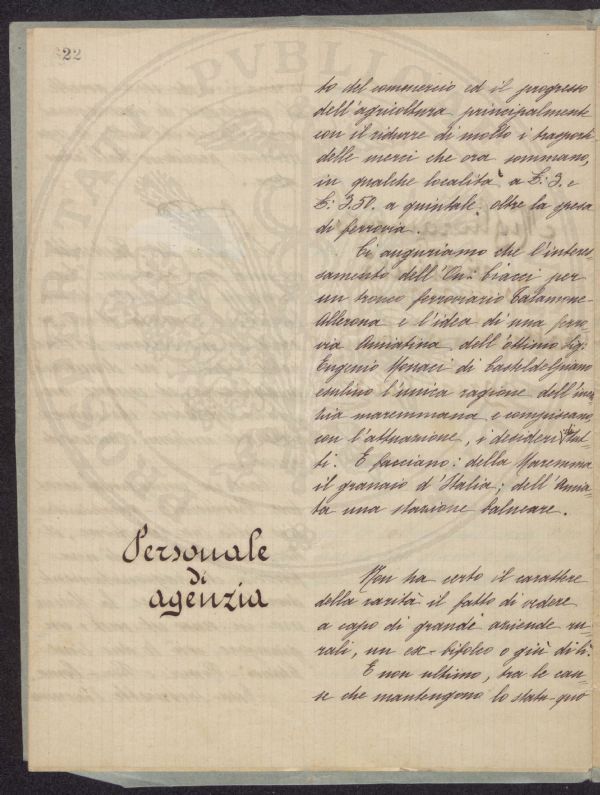 22
to del commercio ed il progresso
dell'agricoltura principalmente
con il ridurre di molto i trasporti
delle merci che ora sommano,
in qualche località a £: 3. e
£: 3.50. a quintale oltre la spesa
di ferrovia.
Ci auguriamo che l'interes-
samento dell'On: Ciacci per
un tronco ferroviario Talamone-
Allerona e l'idea di una ferro-
via Amiatina dell'ottimo Sig:
Eugenio Monaci di Casteldelpiano
esulino l'unica ragione dell'iner-
zia maremmana e compiscano,
con l'attuazione, i desideri di tut-
ti. E facciano: della Maremma
il granaio d'Italia; dell'Amia-
ta una stazione balneare.
Personale
di
agenzia
Non ha certo il carattere
della rarità il fatto di vedere
a capo di grande aziende ru-
rali, un ex-bifolco o giù di lì.
E non ultimo, tra le cau-
se che mantengono lo statu quo